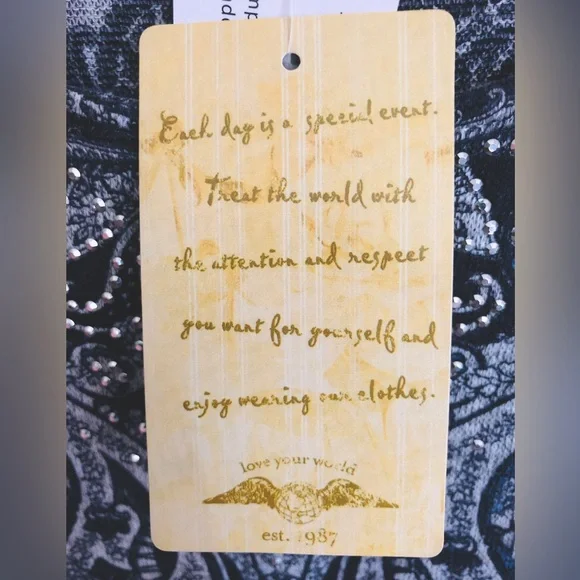 Each day is a special event.
Treat the world with
the attention and respect
you want for yourself and
enjoy wearing our clothes.
love your world
est. 1987